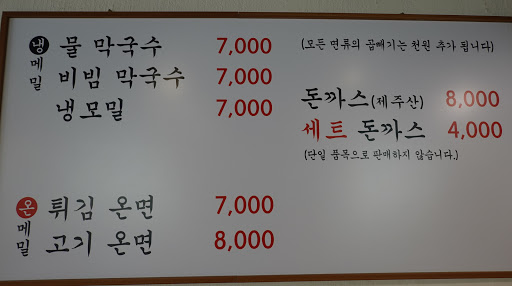 냉메밀
물 막국수 7,000
비빔 막국수 7,000
냉모밀 7,000
(모든 면류의 곱빼기는 천원 추가 됩니다)
돈까스(제주산) 8,000
세트 돈까스 4,000
(단일 품목으로 판매하지 않습니다.)
온메밀
튀김 온면 7,000
고기 온면 8,000